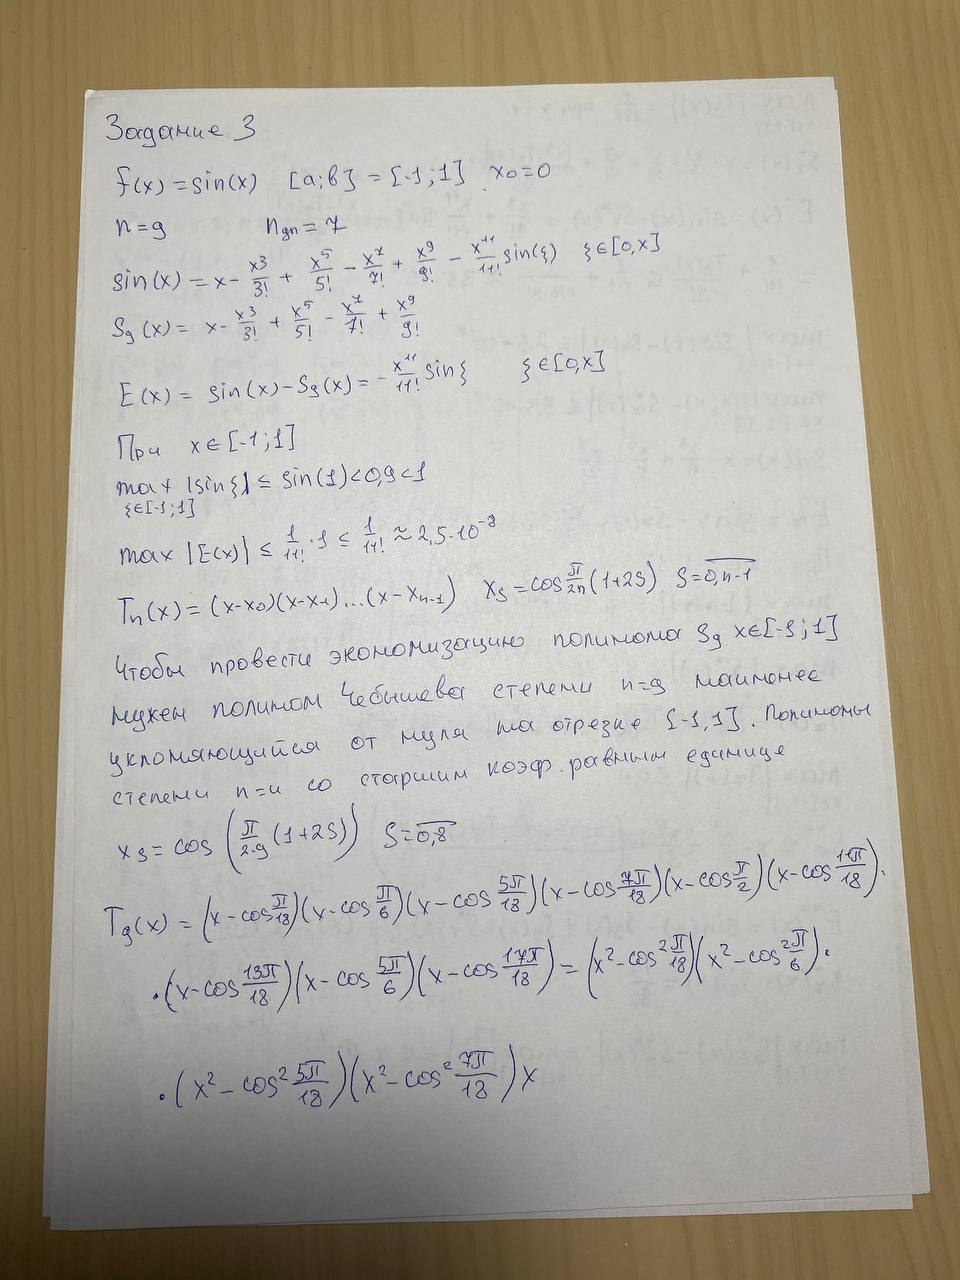 Задание 3
f(x) = sin(x) [a;b] = [-1;1] x₀=0
n=9 nэп = 7
sin(x) = x - x³/3! + x⁵/5! - x⁷/7! + x⁹/9! - x¹¹/11! sin(ξ) ξ∈[0,x]
S₉(x) = x - x³/3! + x⁵/5! - x⁷/7! + x⁹/9!
E(x) = sin(x) - S₉(x) = - x¹¹/11! sin ξ ξ∈[0,x]
При x∈[-1;1]
max |sin ξ| ≤ sin(1) < 0,9 < 1
ξ∈[-1;1]
max |E(x)| ≤ 1/11! · 1 ≤ 1/11! ≈ 2,5·10⁻⁸
Tn(x) = (x-x₀)(x-x₁)...(x-xn-1) xs = cos π/2n (1+2S) S=0,n-1
Чтобы провести экономизацию полинома S₉ x∈[-1;1]
нужен полином Чебышева степени n=9 наименее
уклоняющийся от нуля на отрезке [-1,1]. Полиномы
степени n=n со старшим коэф. равным единице
xs = cos (π/2·9 (1+2S)) S=0,8
T₉(x) = (x-cos π/18)(x-cos π/6)(x-cos 5π/18)(x-cos 7π/18)(x-cos π/2)(x-cos 11π/18)·
·(x-cos 13π/18)(x-cos 5π/6)(x-cos 17π/18) = (x²-cos² π/18)(x²-cos² π/6)·
·(x²-cos² 5π/18)(x²-cos² 7π/18)x